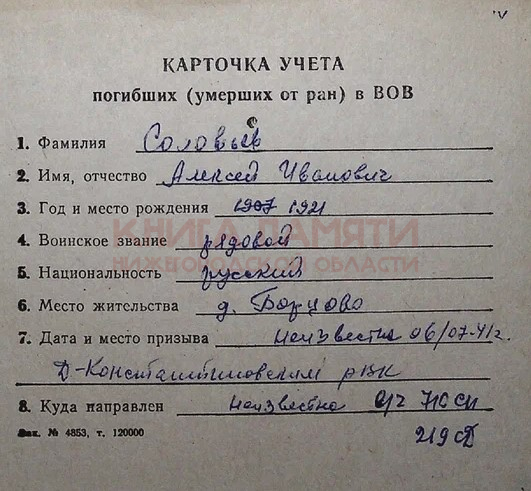 КАРТОЧКА УЧЕТА
погибших (умерших от ран) в ВОВ
1. Фамилия Соловьев
2. Имя, отчество Алексей Иванович
3. Год и место рождения 1907 1921
КНИГА ПАМЯТИ
4. Воинское звание рядовой
НИЖЕГОРОДСКОЙ ОБЛАСТИ
5. Национальность русский
6. Место жительства д. Борцово
7. Дата и место призыва неизвестна 06/07.41г.
Д-Константиновским рвк
8. Куда направлен неизвестна в/ч 710 СП
Зак. № 4853, т. 120000
219 сд